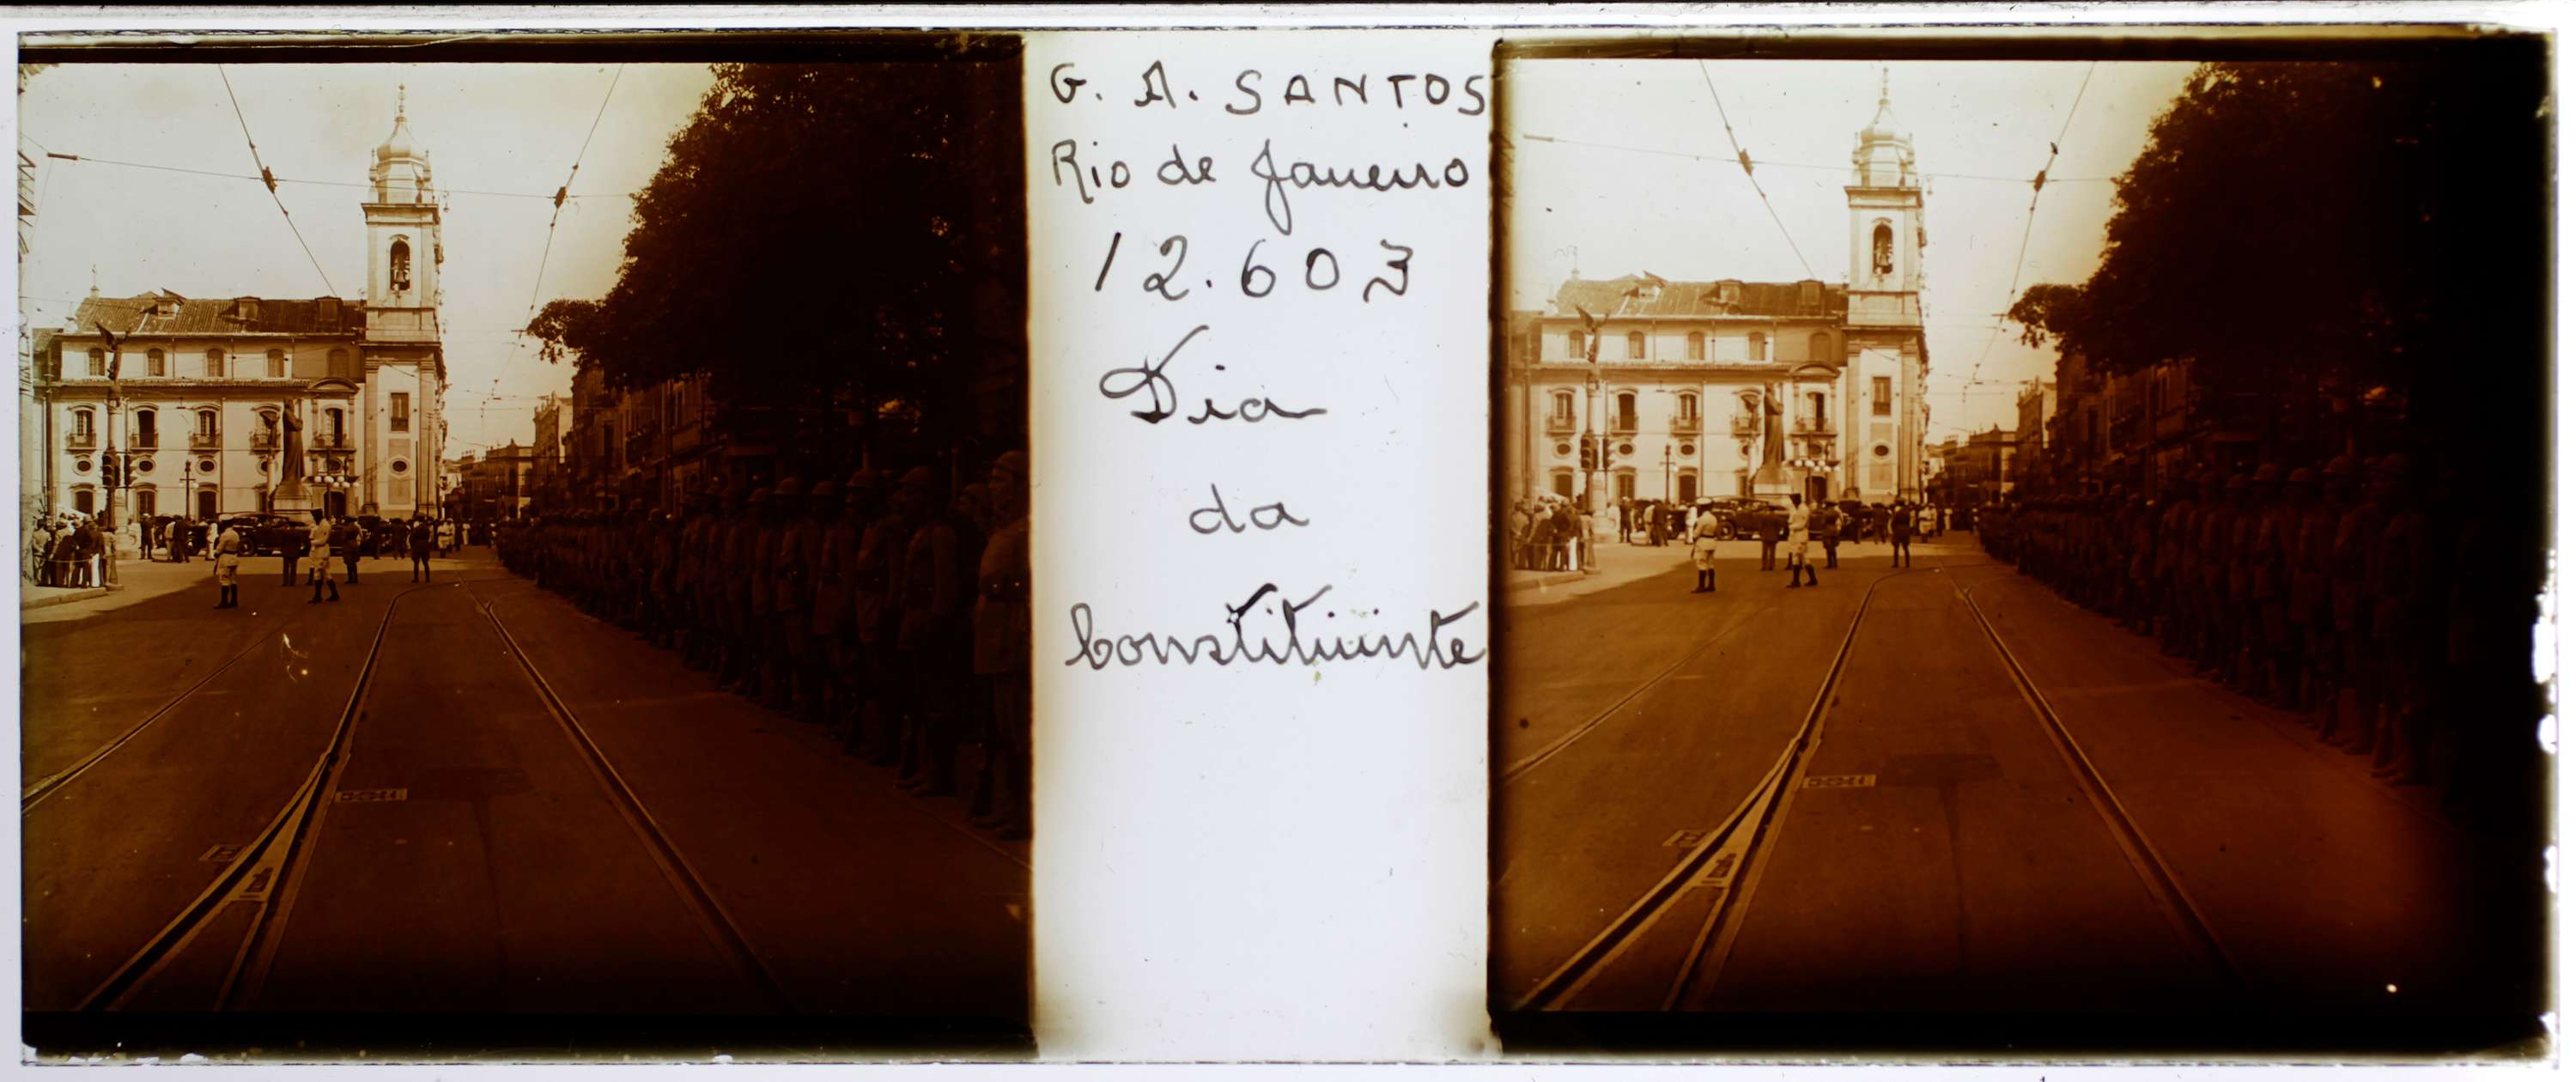 G. A. SANTOS
Rio de Janeiro
12.603
Dia
da
Constituinte